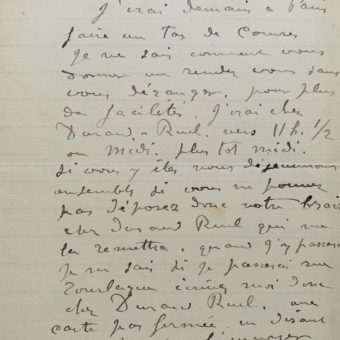 J'irai demain à Paris
faire un tas de courses
Je ne sais comment vous
donner un rendez vous sans
vous déranger. pour plus
de facilités. J'irai chez
Durand-Ruel. vers 11h. 1/2
ou midi. plus tot midi.
si vous y êtes nous déjeunerons
ensemble si vous ne pouvez
pas déposez donc votre
chez Durand Ruel qui me
la remettra. quand j'y passerai
je ne sais si je passerai rue
écrivez moi donc
chez Durand Ruel. une
carte pas fermée en disant